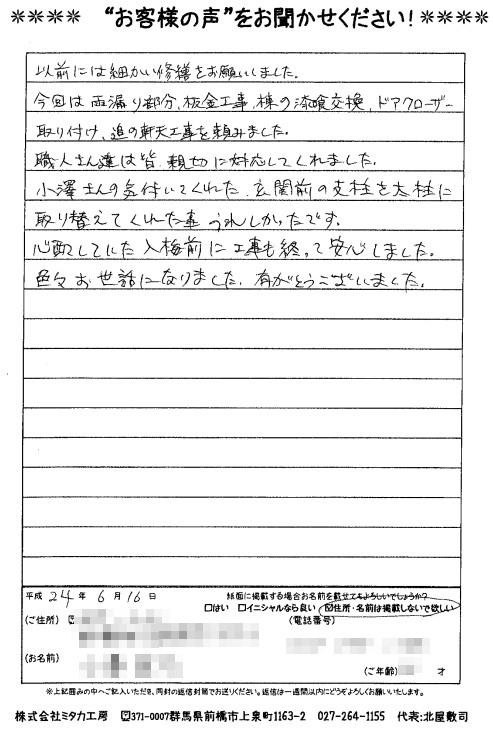 **** “お客様の声”をお聞かせください!****
以前には細かい修繕をお願いしました。
今回は雨漏り部分、板金工事、棟の漆喰交換、ドアクローザー
取り付け、追の軒天工事を頼みました。
職人さん達は皆、親切に対応してくれました。
小澤さんの気付いてくれた、玄関前の支柱を太柱に
取り替えてくれた事 うれしかったです。
心配していた入梅前に工事も終って安心しました。
色々お世話になりました、有がとうございました。
平成 24 年 6 月 16 日
紙面に掲載する場合お名前を載せてもよろしいでしょうか?
□はい □イニシャルなら良い ☑住所・名前は掲載しないで欲しい
(ご住所) 〒
(電話番号)
(お名前)
(ご年齢) 才
※上記囲みの中へご記入いただき、同封の返信封筒でお送りください。返信は一週間以内にどうぞよろしくお願いいたします。
株式会社ミタカ工房 〒371-0007群馬県前橋市上泉町1163-2 027-264-1155 代表:北屋敷司